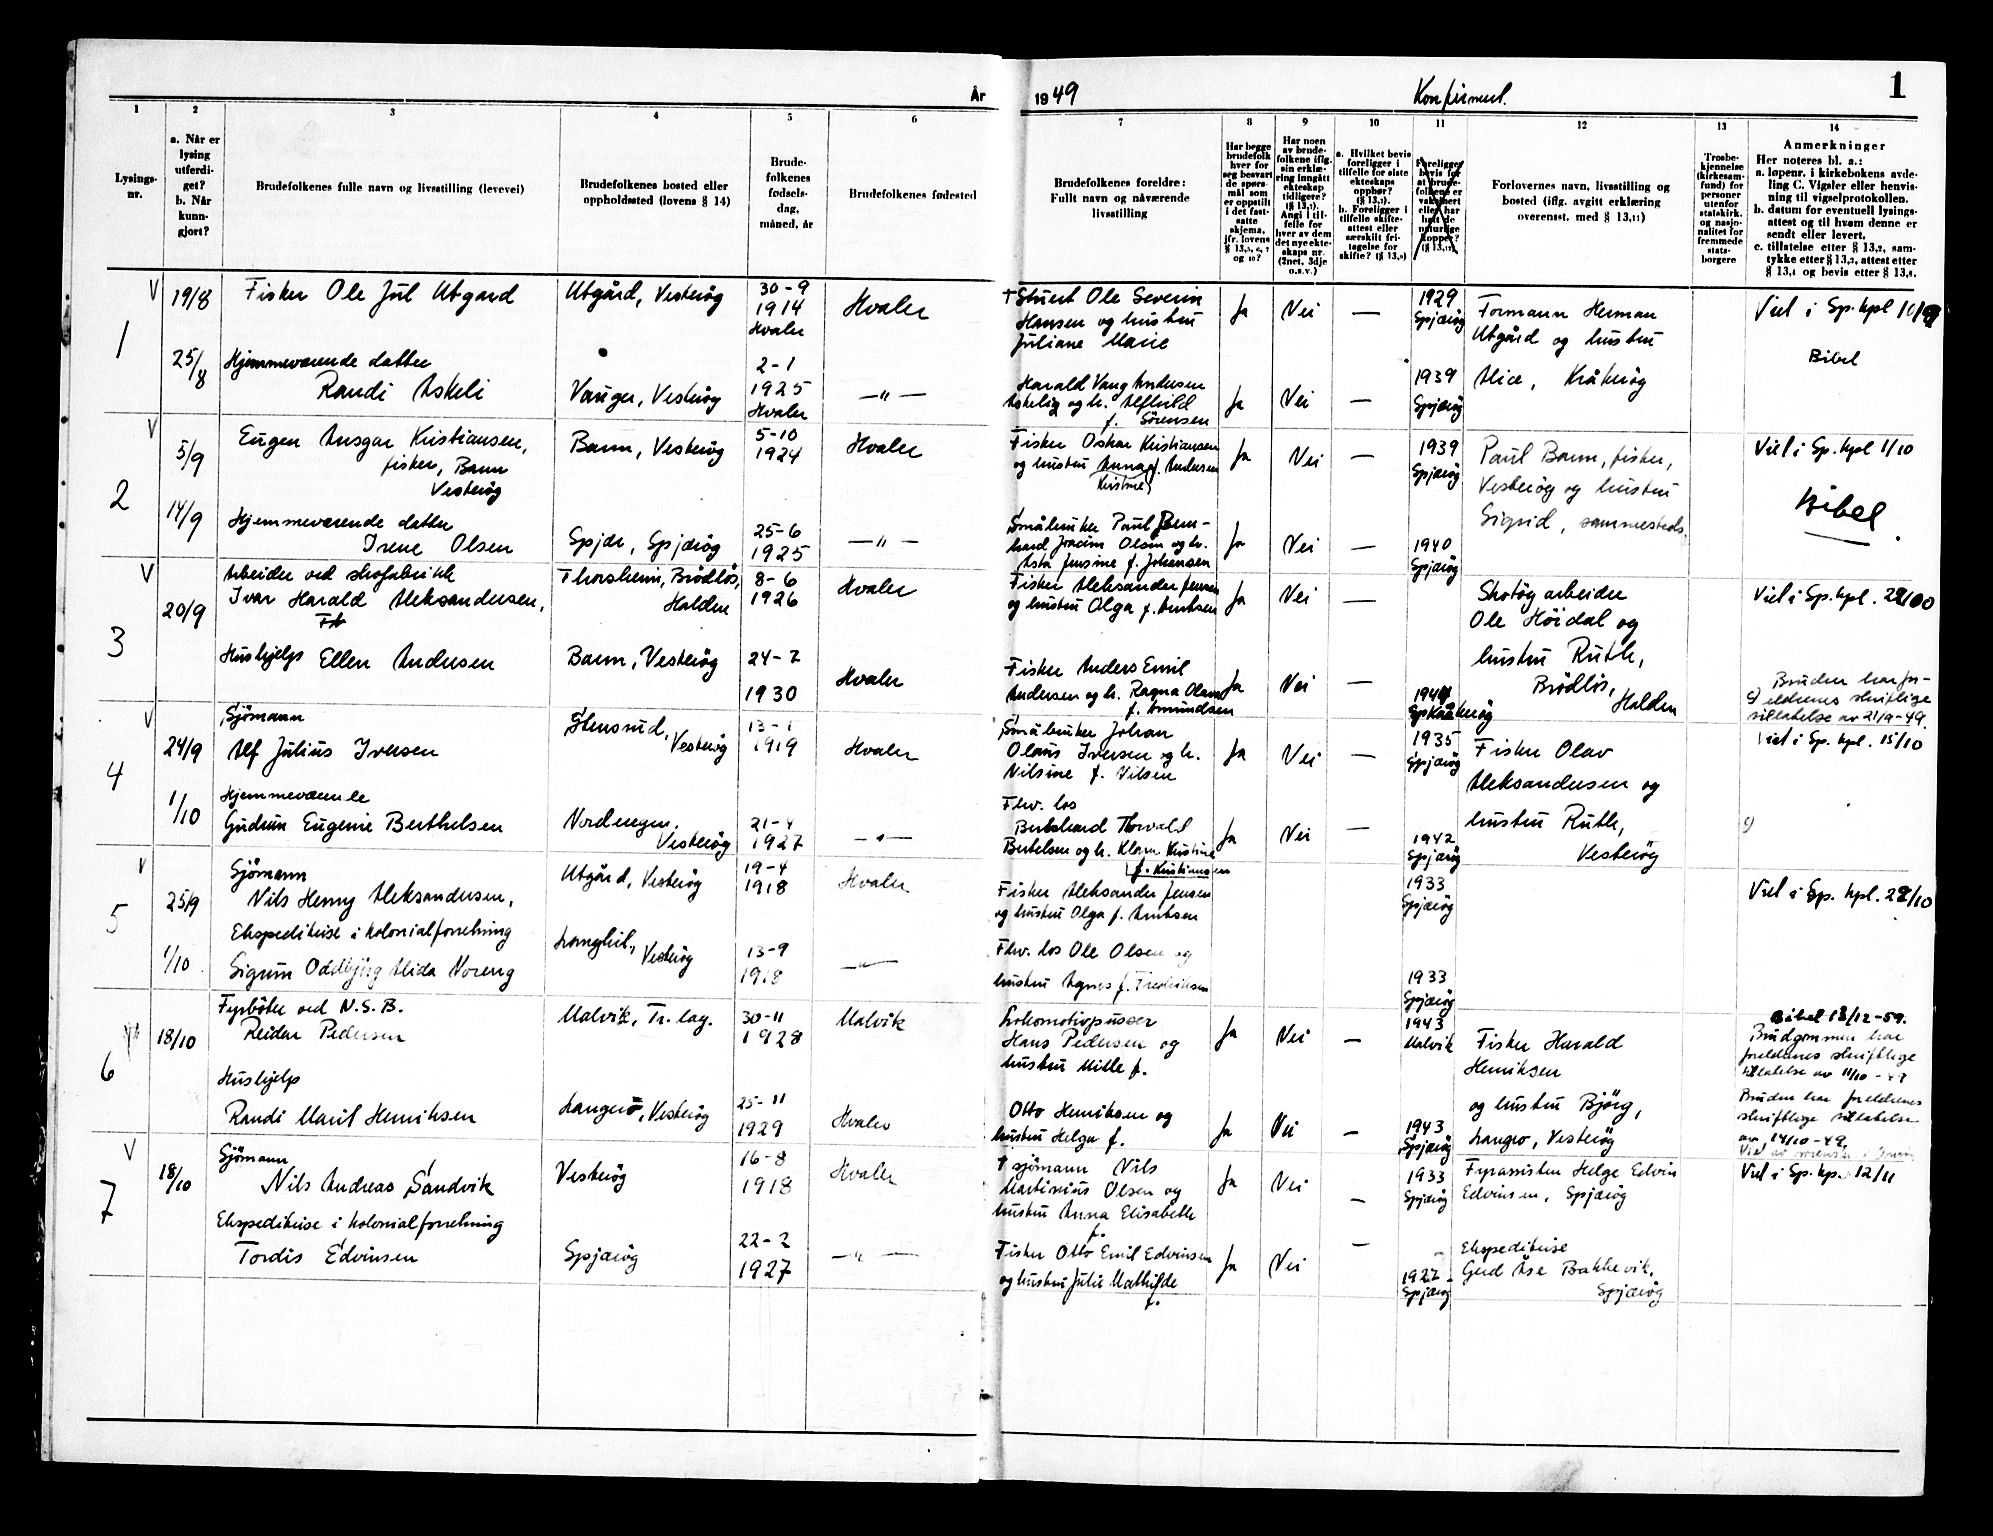 År
1949
Konfirmert.
1
1
2
3
4
5
6
7
8
9
10
11
12
13
14
Lysings-
nr.
a. Når er
lysing
utferdi-
get?
b. Når
kunn-
gjort?
Brudefolkenes fulle navn og livsstilling (levevei)
Brudefolkenes bosted eller
oppholdssted (lovens § 14)
Brude-
folkenes
fødsels-
dag,
måned, år
Brudefolkenes fødested
Brudefolkenes foreldre:
Fullt navn og nåværende
livsstilling
Har begge
brudefolk
hver for
seg besvart
de spørs-
mål som
er oppstilt
i det fast-
satte
skjema,
jfr. lovens
og 10?
Har noen
av brude-
folkene iflg.
sin erklæ-
ring inngått
ekteskap
tidligere?
Angi i til-
felle for
hver av dem
det nye ekte-
skaps nr.
(2net, 3dje
o.s.v.)
a. Hvilket bevis
foreligger i
tilfelle for siste
ekteskaps
opphør?
b. Foreligger i
tilfelle skifte-
attest eller
særskilt fri-
tagelse for
skifte?
Foreligger
bevis for
at brude-
folkene er
vaksinert
eller har
hatt de
naturlige
kopper?
Forlovernes navn, livsstilling og
bosted (iflg. avgitt erklæring
overensst. med § 13,11)
Trosbe-
kjennelse
(kirkesam-
fund) for
personer
utenfor
statskirk.
og nasjo-
nalitet for
fremmede
stats-
borgere
Anmerkninger
Her noteres bl. a.:
a. løpenr. i kirkebokens avde-
ling C. Vigsler eller henvis-
ning til vigselprotokollen.
b. datum for eventuell lysings-
attest og til hvem denne er
sendt eller levert.
c. tillatelse etter § 13,2, sam-
tykke etter § 13,3, attest etter
§ 13,4 og bevis etter § 13,8.
1
19/8
Fisker Ole Jul Utgård
Utgård, Vesterøy
30-9
1914
Hvaler
Hvaler
† Stuert Ole Severin
Hansen og hustru
Juliane Marie
Ja
Nei
—
1929
Spjærøy
Formann Herman
Utgård og hustru
Alice, Kråkerøy
Viet i Sp. kpl
Bibel
25/8
Hjemmeværende datter
Randi Askeli
Vauger, Vesterøy
2-1
1925
Hvaler
—"—
Harald Vang Andersen
Askelig og h. Alfhild
f. Sörensen
Ja
Nei
—
1939
Spjærøy
2
5/9
Eugen Ansgar Kristiansen,
fisker, Bann
Vesterøy
Bann, Vesterøy
5-10
1924
Hvaler
Fisker Oskar Kristiansen
og hustru Anna f. Andersen
Kristine
Ja
Nei
—
1939
Spjærøy
Paul Bann, fisker,
Vesterøy og hustru
Sigrid, sammesteds.
Viet i Sp. kpl 1/10
Bibel
14/9
Hjemmeværende datter
Irene Olsen
Spjær, Spjærøy
25-6
1925
—"—
Småbruker Paul Bern-
hard Joacim Olsen og h.
Asta Jensine f. Johansen
Ja
Nei
—
1940
Spjærøy
3
20/9
Arbeider ved skofabrikk
Ivar Harald Aleksandersen,
Thorsheim, Brödlös,
Halden
8-6
1926
Hvaler
Fisker Aleksander Jensen
og hustru Olga f. Arntsen
Ja
Nei
—
Skotøyarbeider
Ole Höidal og
hustru Ruth,
Brödlös,
Halden
Viet i Sp. kpl.
Hushjelp Ellen Andersen
Bann, Vesterøy
24-7
1930
Hvaler
Fisker Anders Emil
Andersen og h. Ragna Olava
f. Amundsen
Ja
Nei
—
Kråkerøy
Bruden har for-
eldrenes skriftlige
tillatelse av 21/9-49.
4
24/9
Sjömann
Alf Julius Iversen
Stensrud,
Vesterøy
13-1
1919
Hvaler
Småbruker Johan
Olaus Iversen og h.
Nilsine f. Nilsen
Ja
Nei
—
1935
Spjærøy
Fisker Olav
Aleksandersen og
hustru Ruth,
Vesterøy
Viet i Sp. kpl. 15/10
1/10
Hjemmeværende
Gudrun Eugenie Berthelsen
Nordengen,
Vesterøy
21-4
1927
—"—
Fhv. los
Bernhard Thorvald
Bertelsen og h. Klara Kristine
f. Kristiansen
Ja
Nei
—
1942
Spjærøy
5
25/9
Sjömann
Nils Henry Aleksandersen,
Utgård, Vesterøy
19-4
1918
Hvaler
Fisker Aleksander Jensen
og hustru Olga f. Arntsen
1933
Spjærøy
Viet i Sp. kpl.
1/10
Ekspeditrise i kolonialforretning
Sigrun Oddbjörg Alida Noreng
Vesterøy
13-9
1918
—"—
Fhv. los Ole Olsen og
hustru Agnes f. Fredriksen
1933
Spjærøy
6
18/10
Fyrböter ved N.S.B.
Reidar Pedersen
Malvik, Tr. lag.
30-11
1928
Malvik
Lokomotivpusser
Hans Pedersen og
hustru Mille f.
Ja
Nei
—
1943
Malvik
Fisker Harald
Henriksen
og hustru Björg,
Langerö, Vesterøy
Bibel 13/12-59.
Brudgommen har
foreldrenes skriftlige
tillatelse av 11/10-49
Hushjelp
Randi Marit Henriksen
Langerö, Vesterøy
25-11
1929
Hvaler
Otto Henriksen og
hustru Helga f.
Ja
Nei
—
1943
Spjærøy
Bruden har foreldrenes
skriftlige tillatelse
av 14/10-49.
7
18/10
Sjömann
Nils Andreas Sandvik
Vesterøy
16-8
1918
Hvaler
† sjömann Nils
Martinius Olsen og
hustru Anna Elisabeth
f.
Ja
Nei
—
1933
Spjærøy
Fyrassistent Helge Edvin
Edvinsen, Spjærøy
Viet i Sp. kp. 12/11
Ekspeditrise i kolonialforretning
Tordis Edvinsen
Spjærøy
22-2
1927
—"—
Fisker Otto Emil Edvinsen
og hustru Julie Mathilde
f.
Ja
Nei
—
1927
Spjærøy
Ekspeditrise
Gerd Åse Bakkevik,
Spjærøy